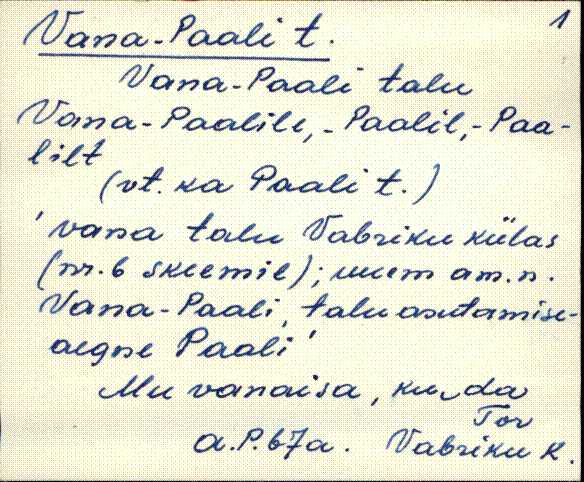 1
Vana-Paali t.
Vana-Paali talu
Vana-Paalile, -Paalil, -Paa-
lilt
(vt. ka Paali t.)
'vana talu Vabriku külas
(nr. 6 skeemil); uuem am.n.
Vana-Paali, talu asutamise-
aegne Paali'
Mu vanaisa, ku_da
Tor
a.P.67a. Vabriku k.